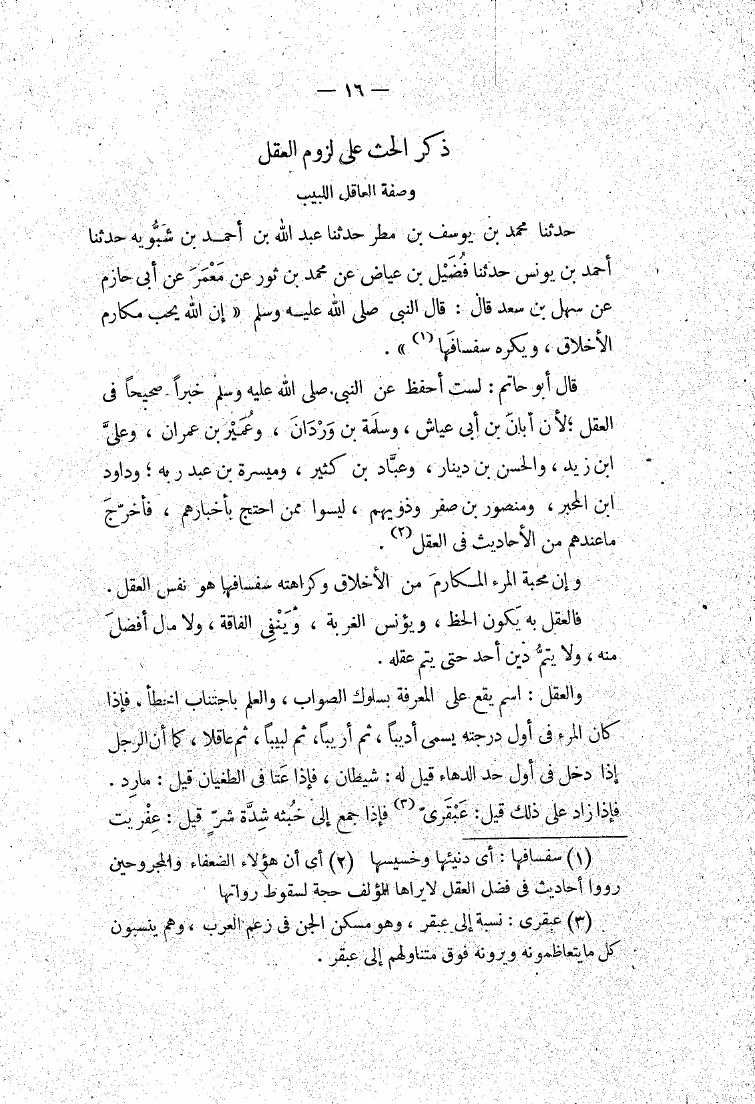 — ١٦ —
ذكر الحث على لزوم العقل
وصفة العاقل اللبيب
حدثنا محمد بن يوسف بن مطر حدثنا عبد الله بن أحمد بن شَبُّويه حدثنا
أحمد بن يونس حدثنا فُضَيْل بن عياض عن محمد بن ثور عن مَعْمَرَ عن أبى حازم
عن سهل بن سعد قال : قال النبى صلى الله عليه وسلم « إن الله يحب مكارم
الأخلاق ، ويكره سفسافَها (١) » .
قال أبو حاتم : لست أحفظ عن النبى صلى الله عليه وسلم خبراً صحيحاً فى
العقل ؛ لأن أبانَ بن أبى عياش ، وسلَمة بن وَرْدَانَ ، وعُمَيْر بن عمران ، وعلىَّ
ابن زيد ، والحسن بن دينار ، وعبَّاد بن كثير ، وميسرة بن عبد ربه ؛ وداود
ابن المحبر ، ومنصور بن صفر وذويهم ، ليسوا ممن احتج بأخبارهم ، فأخرّجَ
ماعندهم من الأحاديث فى العقل (٢) .
وإن محبة المرء المكارمَ من الأخلاق وكراهته سفسافها هو نفس العقل .
فالعقل به يَكون الحظ ، ويؤنس الغربة ، وَيَنْفِى الفاقة ، ولا مال أفضلَ
منه ، ولا يتمُّ دين أحد حتى يتم عقله .
والعقل : اسم يقع على المعرفة بسلوك الصواب ، والعلم باجتناب الخطأ . فإذا
كان المرء فى أول درجته يسمى أديباً ، ثم أريباً ، ثم لبيباً ، ثم عاقلا ، كما أن الرجل
إذا دخل فى أول حد الدهاء قيل له : شيطان ، فإذا عَتا فى الطغيان قيل : مارد .
فإذا زاد على ذلك قيل : عَبْقَرىّ (٣) فإذا جمع إلى خُبْثه شِدَّة شرّ قيل : عِفْريت
(١) سفسافها : أى دنيئها وخسيسها (٢) أى أن هؤلاء الضعفاء والمجروحين
رووا أحاديث فى فضل العقل لايراها المؤلف حجة لسقوط رواتها
(٣) عبقرى : نسبة إلى عبقر ، وهو مسكن الجن فى زعم العرب ، وهم ينسبون
كل مايتعاظمونه ويرونه فوق متناولهم إلى عبقر .